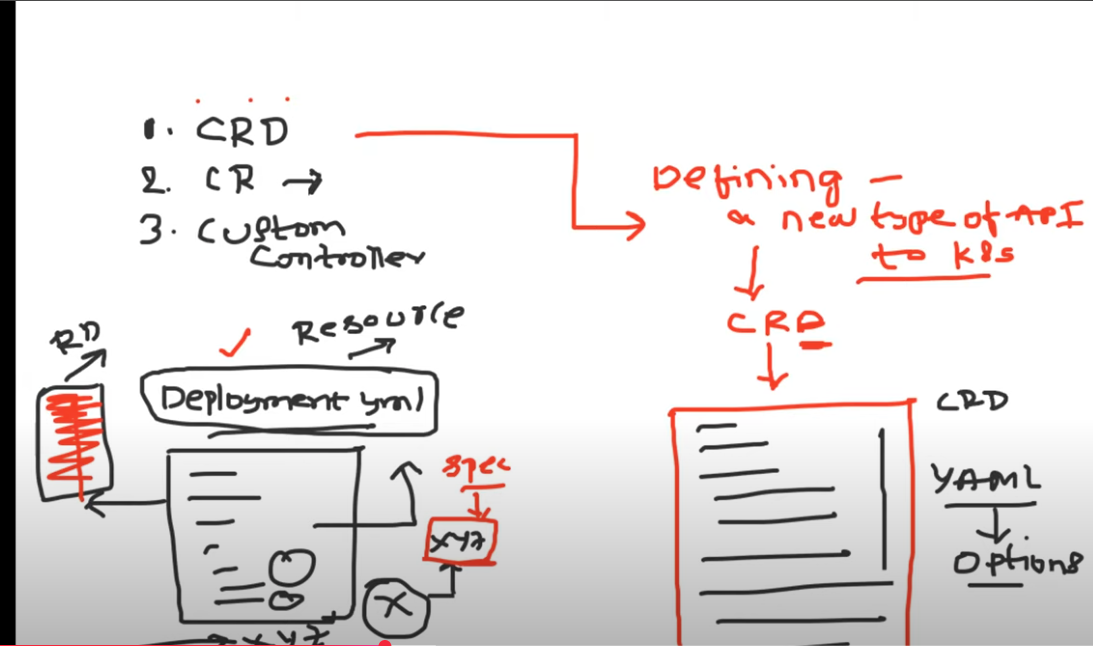 1. CRD
2. CR →
3. Custom
Controller
Defining –
a new type of API
to k8s
CRD
RD
Resource
Deployment yml
spec
xyz
X
xyz
CRD
YAML
Options